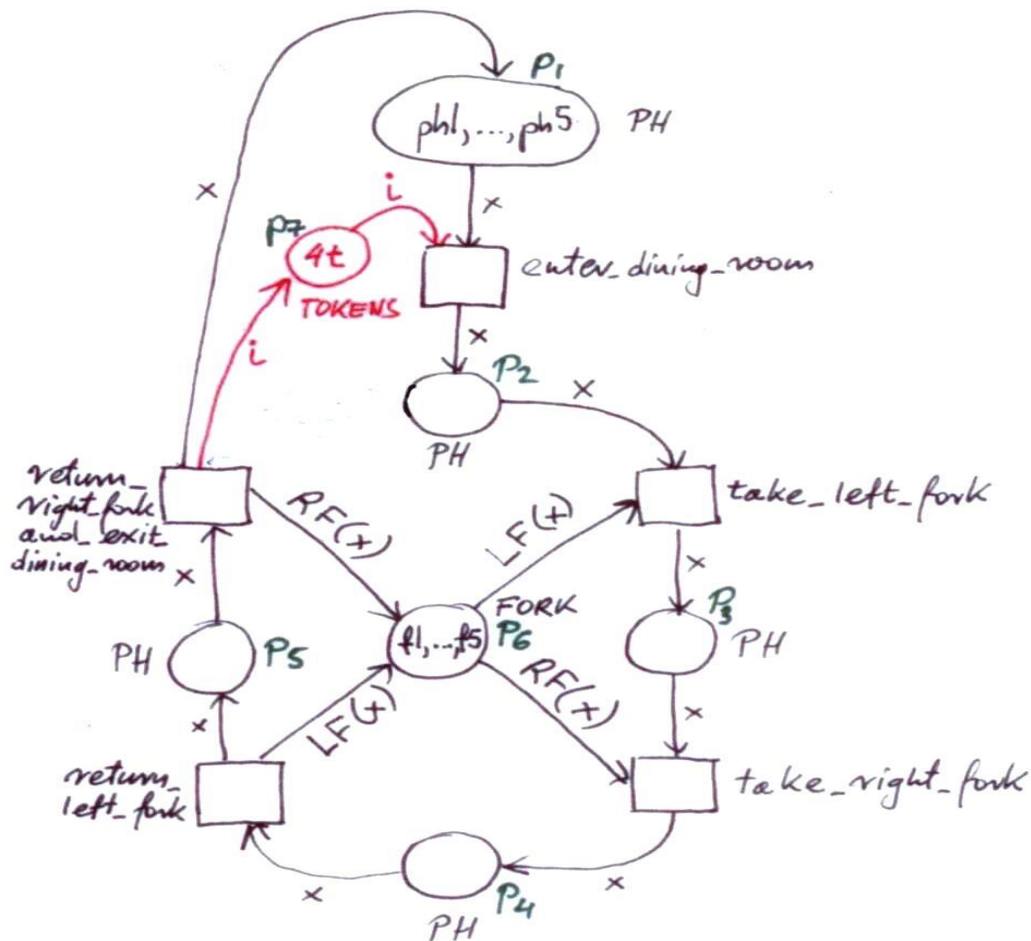 P1
ph1,...,ph5
PH
x
x
i
P7
4t
TOKENS
enter_dining_room
i
x
P2
x
PH
return_
right_fork
and_exit_
dining_room
take_left_fork
RF(x)
LF(x)
x
x
FORK
f1,...,f5
P6
P3
PH
PH
P5
x
LF(x)
RF(x)
x
return_
left_fork
take_right_fork
x
x
P4
PH